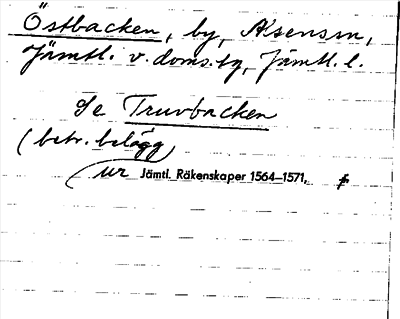 Östbacken, by, Alsens sn,
Jämtl. v. doms.tg, Jämtl. l.
Se Truvbacken
(betr. belägg
ur Jämtl. Räkenskaper 1564–1571,